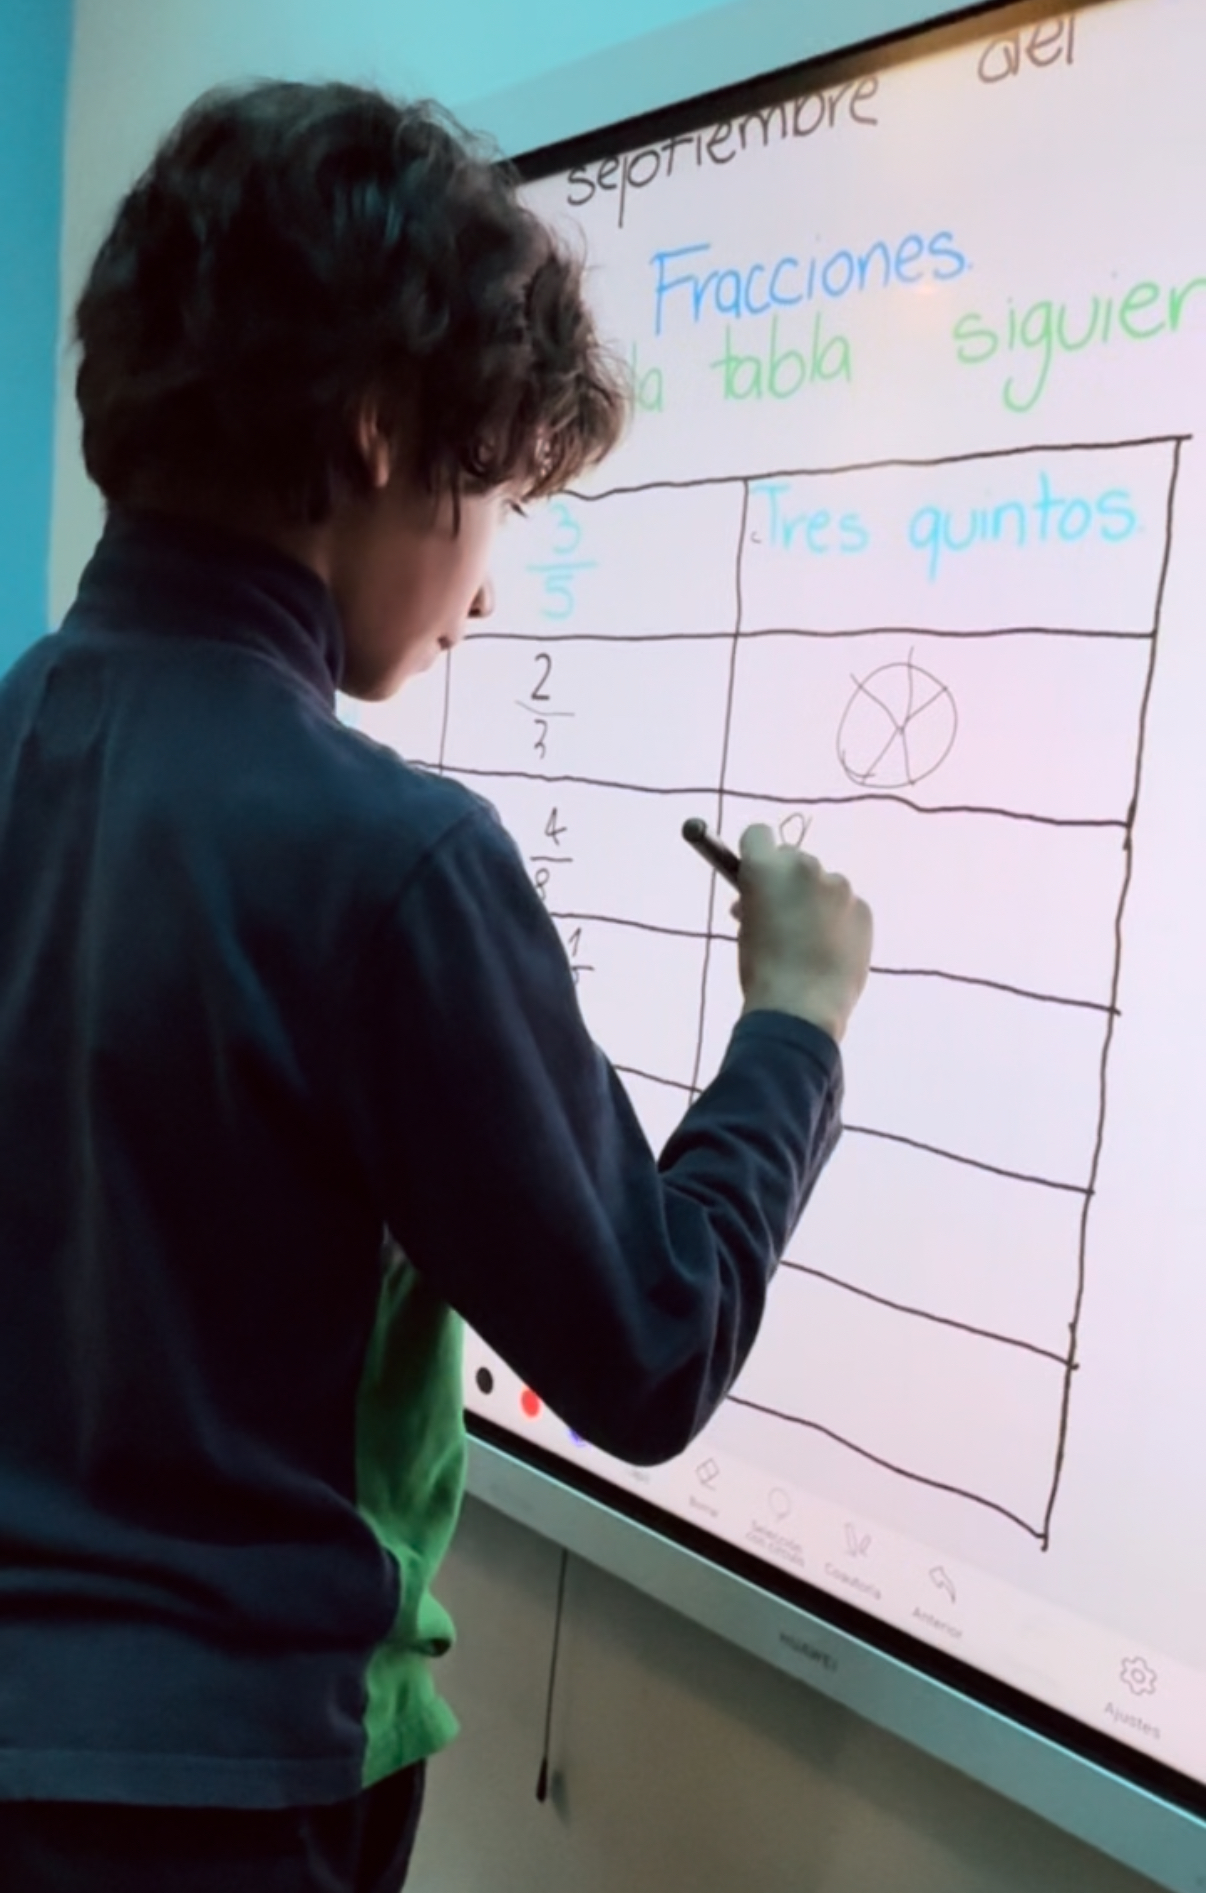 septiembre del
Fracciones.
la tabla siguien
3/5 Tres quintos.
2/3
4/8
1
Borrar
Selección
con círculo
Coautoría
Anterior
Ajustes
HUAWEI